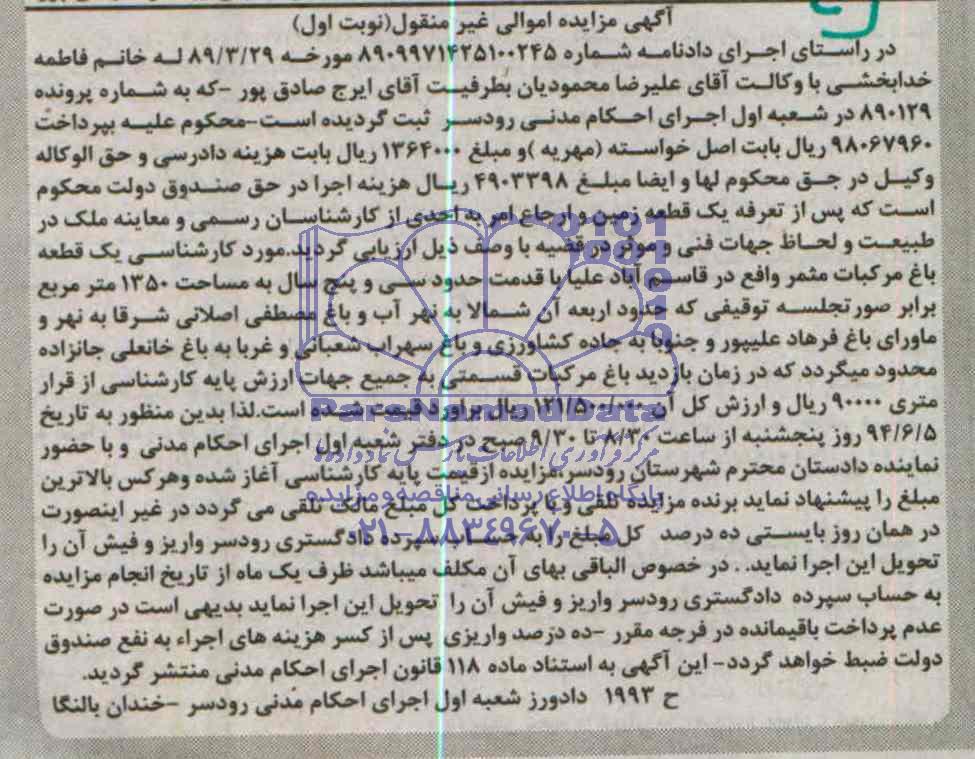 آگهی مزایده اموالی غیر منقول(نوبت اول)
در راستای اجرای دادنامه شماره ۸۹۰۹۹۷۱۴۲۵۱۰۰۲۴۵ مورخه ۸۹/۳/۲۹ له خانم فاطمه
خدابخشی با وکالت آقای علیرضا محمودیان بطرفیت آقای ایرج صادق پور -که به شماره پرونده
۸۹۰۱۲۹ در شعبه اول اجرای احکام مدنی رودسر ثبت گردیده است-محکوم علیه بپرداخت
۹۸۰۶۷۹۶۰ ریال بابت اصل خواسته (مهریه )و مبلغ ۱۳۶۴۰۰۰ ریال بابت هزینه دادرسی و حق الوکاله
وکیل در حق محکوم لها و ایضا مبلغ ۴۹۰۳۳۹۸ ریال هزینه اجرا در حق صندوق دولت محکوم
است که پس از تعرفه یک قطعه زمین و ارجاع امر به احدی از کارشناسان رسمی و معاینه ملک در
طبیعت و لحاظ جهات فنی و موثر در قضیه با وصف ذیل ارزیابی گردید.مورد کارشناسی یک قطعه
باغ مرکبات مثمر واقع در قاسم آباد علیا با قدمت حدود سی و پنج سال به مساحت ۱۳۵۰ متر مربع
برابر صورتجلسه توقیفی که حدود اربعه آن شمالا به نهر آب و باغ مصطفی اصلانی شرقا به نهر و
ماورای باغ فرهاد علیپور و جنوبا به جاده کشاورزی و باغ سهراب شعبانی و غربا به باغ خانعلی جانزاده
محدود میگردد که در زمان بازدید باغ مرکبات قسمتی به جمیع جهات ارزش پایه کارشناسی از قرار
متری ۹۰۰۰۰ ریال و ارزش کل آن ۱۲۱/۵۰۰/۰۰۰ ریال براورد قیمت شده است.لذا بدین منظور به تاریخ
۹۴/۶/۵ روز پنجشنبه از ساعت ۸/۳۰ تا ۹/۳۰ صبح در دفتر شعبه اول اجرای احکام مدنی و با حضور
نماینده دادستان محترم شهرستان رودسر مزایده ازقیمت پایه کارشناسی آغاز شده وهرکس بالاترین
مبلغ را پیشنهاد نماید برنده مزایده تلقی و با پرداخت کل مبلغ مالک تلقی می گردد در غیر اینصورت
در همان روز بایستی ده درصد کل مبلغ را به حساب سپرده دادگستری رودسر واریز و فیش آن را
تحویل این اجرا نماید. . در خصوص الباقی بهای آن مکلف میباشد ظرف یک ماه از تاریخ انجام مزایده
به حساب سپرده دادگستری رودسر واریز و فیش آن را تحویل این اجرا نماید بدیهی است در صورت
عدم پرداخت باقیمانده در فرجه مقرر -ده درصد واریزی پس از کسر هزینه های اجراء به نفع صندوق
دولت ضبط خواهد گردد- این آگهی به استناد ماده ۱۱۸ قانون اجرای احکام مدنی منتشر گردید.
ح ۱۹۹۳ دادورز شعبه اول اجرای احکام مدنی رودسر -خندان بالنگا
ParsNamadData
پایگاه اطلاع رسانی مناقصه و مزایده
۰۲۱-۸۸۳۴۹۶۷۰-۵